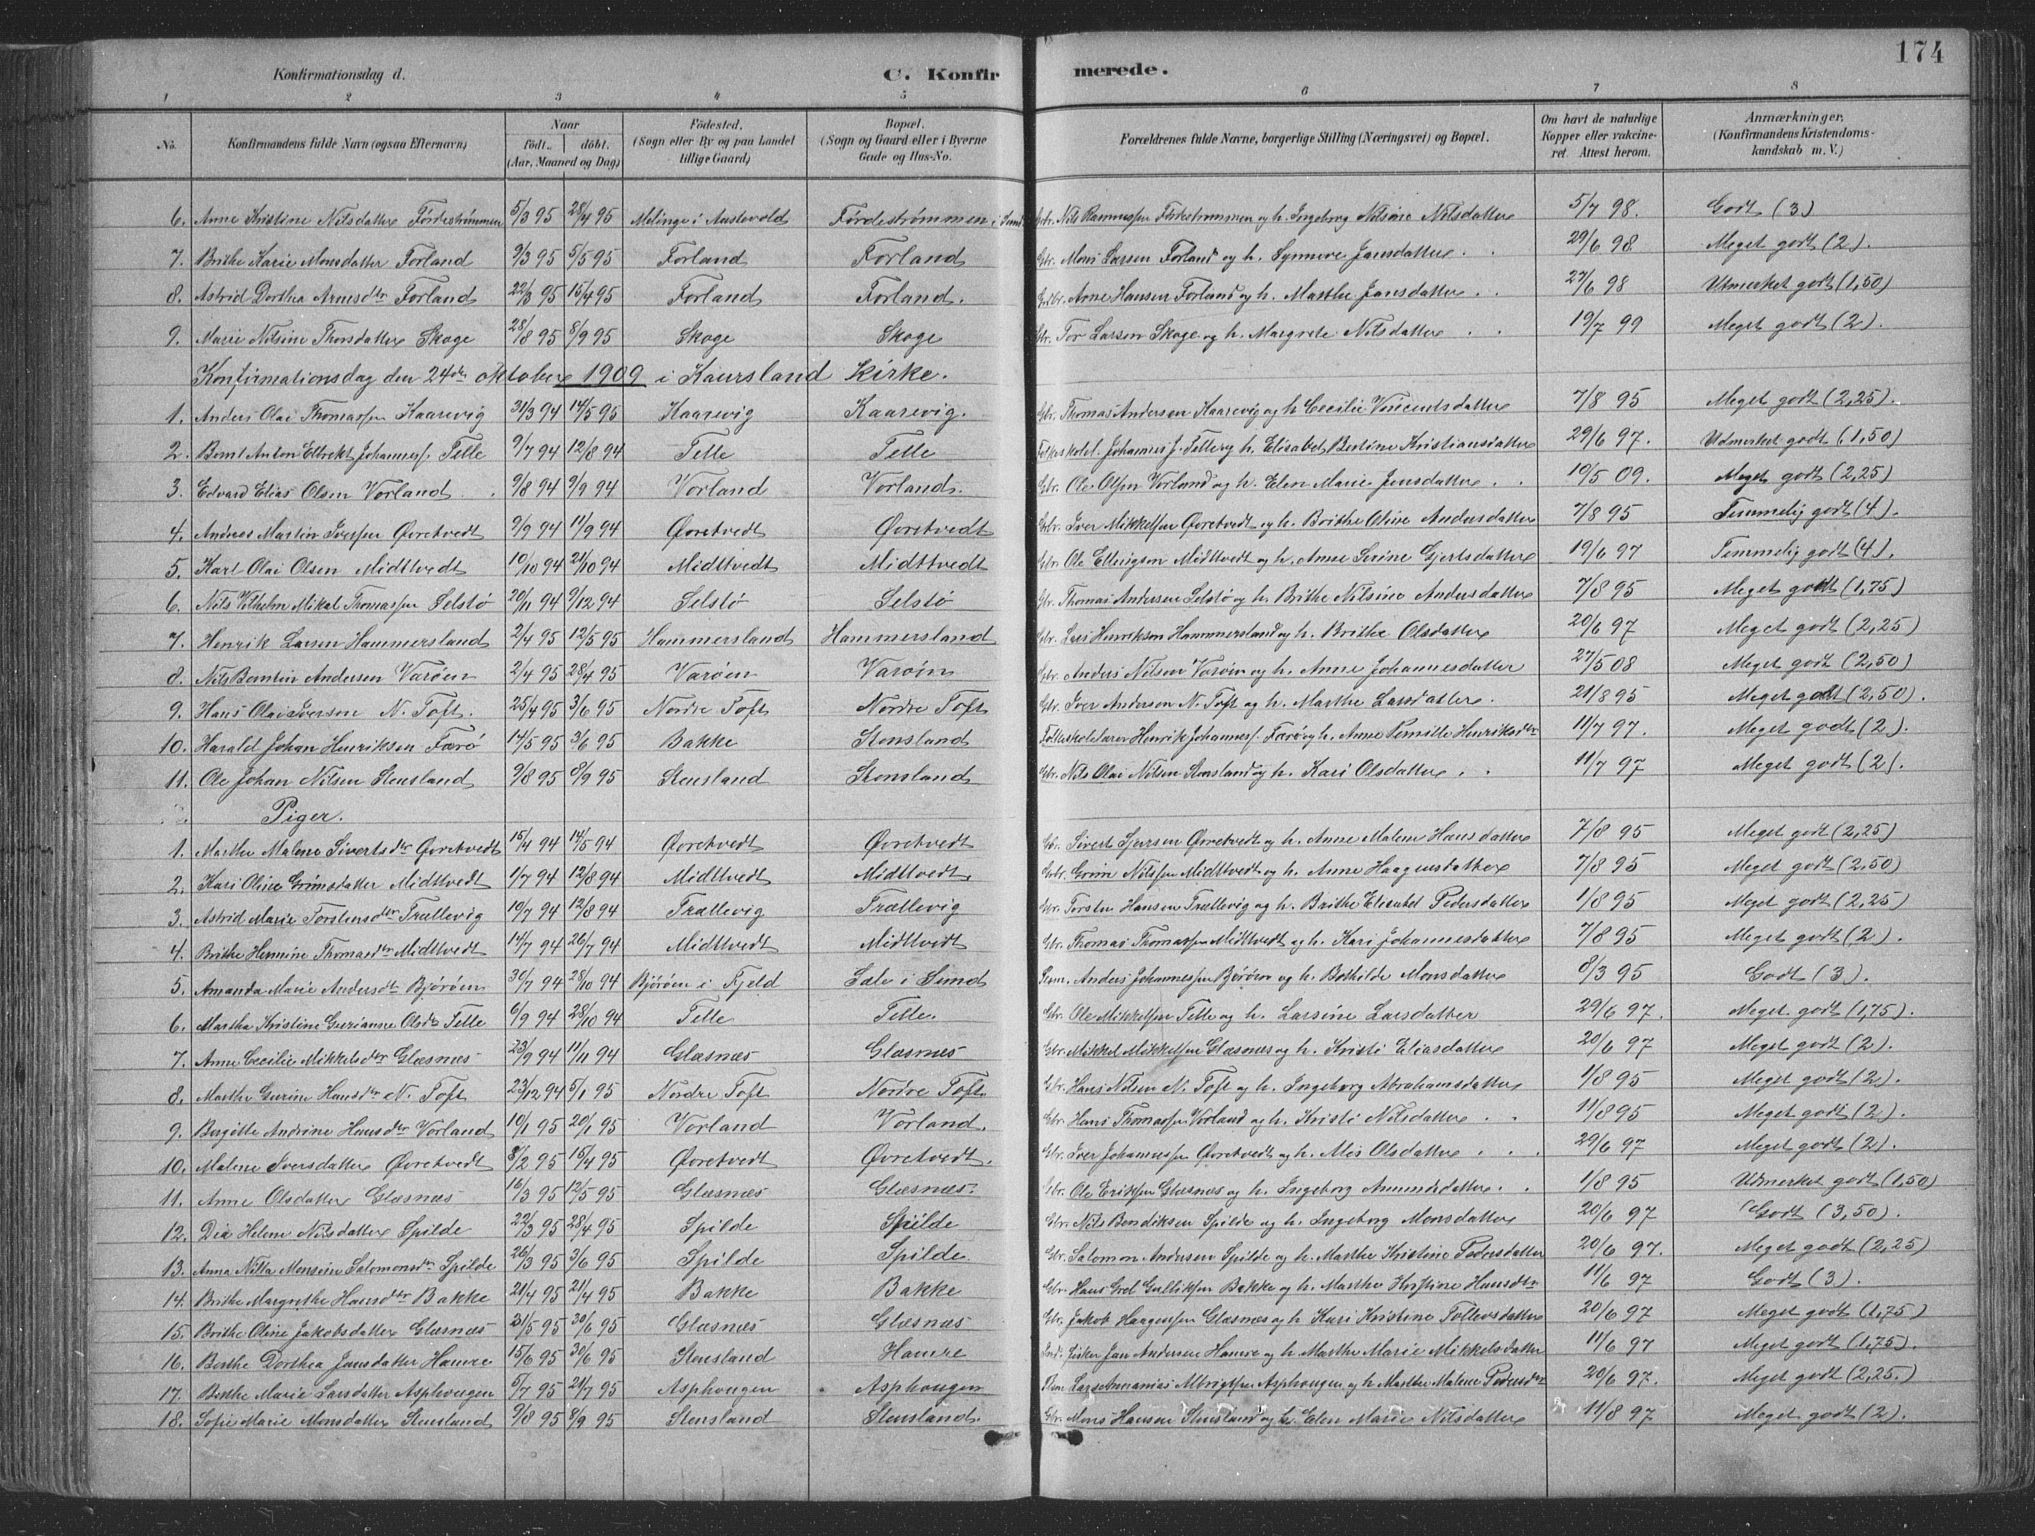 174
Konfirmationsdag d. C. Konfirmerede.
1 2 3 4 5 6 7 8
No. Konfirmandens fulde Navn (ogsaa Efternavn) Naar født. døbt. (Aar, Maaned og Dag) Fødested. (Sogn eller By og paa Landet tillige Gaard) Bopæl. (Sogn og Gaard eller i Byerne Gade og Hus-No. Forældrenes fulde Navne, borgerlige Stilling (Næringsvei) og Bopæl. Om havt de naturlige Kopper eller vakcineret. Attest herom. Anmærkninger. (Konfirmandens Kristendomskundskab m. V.)
6. Anne Kristine Nilsdatter Førdestrømmen 5/3 95 28/4 95 Melinge i Austevold Førdestrømmen i Sund Gbr. Nils Rasmussen Førdestrømmen og h. Ingeborg Nilsine Nilsdatter 5/7 98. Godt (3)
7. Brithe Karie Monsdatter Forland 9/3 95 5/5 95 Forland Forland Gbr. Mons Larsen Forland og h. Synneve Jansdatter 29/6 98 Meget godt (2).
8. Astrid Dorthea Arnesdtr Forland 22/3 95 15/4 95 Forland Forland. Gbr. Arne Hansen Forland og h. Marthe Jansdatter 27/6 98 Utmerket godt (1,50)
9. Marie Nilsine Thorsdatter Skoge 28/8 95 8/9 95 Skoge Skoge Gbr. Tor Larsen Skoge og h. Margrete Nilsdatter 19/7 99 Meget godt (2).
Konfirmationsdag den 24de oktober 1909 i Kaursland Kirke.
1. Anders Olai Thomassen Kaarevig 31/3 94 14/5 95 Kaarevig Kaarevig. Gbr. Thomas Andersen Kaarevig og h. Cecilie Vincentsdatter 7/8 95 Meget godt (2,25).
2. Bernt Anton Elbrekt Johanness. Telle 9/7 94 12/8 94 Telle Telle Folkeskolel. Johannes J. Telle og h. Elisabet Bertine Kristiansdatter 29/6 97. Udmerket godt (1,50)
3. Edvard Elias Olsen Vorland 9/8 94 9/9 94 Vorland Vorland. Gbr. Ole Olsen Vorland og h. Elen Marie Jensdatter 19/5 09. Meget godt (2,25)
4. Andreas Martin Iversen Øvretvedt 9/9 94 11/9 94 Øvretvedt Øvretvedt Gbr. Iver Mikkelsen Øvretvedt og h. Brithe Oline Andersdatter 7/8 95 Temmelig godt (4).
5. Karl Olai Olsen Midttvedt 10/10 94 21/10 94 Midttvedt Midttvedt Gbr. Ole Ellingsen Midttvedt og h. Anne Serine Gjertsdatter 19/6 97 Temmelig godt (4).
6. Nils Vilhelm Mikal Thomassen Selstø 20/11 94 9/12 94 Selstø Selstø Gbr. Thomas Andersen Selstø og h. Brithe Nilsine Andersdatter 7/8 95 Meget godt (1,75)
7. Henrik Larsen Hammersland 2/4 95 12/5 95 Hammersland Hammersland Gbr. Lars Henriksen Hammersland og h. Brithe Olsdatter 20/6 97 Meget godt (2,25)
8. Nils Berntin Andersen Varøen 2/4 95 28/4 95 Varøen Varøen Gbr. Anders Nilsen Varøen og h. Anne Johannesdatter 27/5 08 Meget godt (2,50)
9. Hans Olai Iversen N. Toft. 25/4 95 3/6 95 Nordre Toft Nordre Toft Gbr. Iver Andersen N. Toft og h. Marthe Larsdatter. 21/8 95 Meget godt (2,50).
10. Harald Johan Henriksen Færø 14/5 95 3/6 95 Bakke Stensland Folkeskolelærer Henrik Johanness. Færø og h. Anne Pernille Henriksdtr 11/7 97. Meget godt (2).
11. Ole Johan Nilsen Stensland 9/8 95 8/9 95 Stensland Stensland Gbr. Nils Olai Nilsen Stensland og h. Kari Olsdatter 11/7 97 Meget godt (2).
Piger.
1. Marthe Malene Sivertsdtr Øvretvedt 15/4 94 14/5 94 Øvretvedt Øvretvedt Gbr. Sivert Sjursen Øvretvedt og h. Anne Malene Hansdatter 7/8 95 Meget godt (2,25)
2. Kari Oline Grimsdatter Midttvedt 1/7 94 12/8 94 Midttvedt Midttvedt. Gbr. Grim Nilsen Midttvedt og h. Anne Haagensdatter 7/8 95 Meget godt (2,50)
3. Astrid Marie Torstensdtr Trællevig 10/7 94 12/8 94 Trællevig Trællevig Gbr. Torsten Hansen Trællevig og h. Brithe Elisabet Pedersdatter 1/8 95 Meget godt (2,25)
4. Brithe Hermine Thomasdtr Midttvedt 14/7 94 26/7 94 Midttvedt Midttvedt Gbr. Thomas Thomassen Midttvedt og h. Kari Johannesdatter 7/8 95 Meget godt (2).
5. Amanda Marie Andersdtr Bjørøen 30/7 94 28/10 94 Bjørøen i Fjeld Sale i Sund Anders Johannessen Bjørøen og h. Bothilde Monsdatter 8/3 95 Godt (3).
6. Martha Kristine Gurianne Olsdtr Telle 6/9 94 28/10 94 Telle Telle. Gbr. Ole Mikkelsen Telle og h. Larsine Larsdatter 29/6 97. Meget godt (1,75).
7. Anne Cecilie Mikkelsdtr Glæsnæs 23/9 94 11/11 94 Glæsnæs Glæsnæs Gbr. Mikkel Mikkelsen Glæsnæs og h. Kristi Eliasdatter 20/6 97 Meget godt (2).
8. Marthe Gurine Hansdtr N. Toft 23/12 94 5/1 95 Nordre Toft Nordre Toft. Gbr. Hans Nilsen N. Toft og h. Ingeborg Abrahamsdatter 1/8 95 Meget godt (2).
9. Bergitte Andrine Hansdtr Vorland 10/1 95 20/1 95 Vorland Vorland. Gbr. Hans Thomassen Vorland og h. Kristi Nilsdatter 11/8 95 Meget godt (2).
10. Malene Iversdatter Øvretvedt 8/2 95 15/4 95 Øvretvedt Øvretvedt. Gbr. Iver Johannessen Øvretvedt og h. Olsdatter 29/6 97 Meget godt (2).
11. Anne Olsdatter Glæsnæs 16/3 95 12/5 95 Glæsnæs Glæsnæs. Gbr. Ole Eriksen Glæsnæs og h. Ingeborg Amundsdatter 1/8 95 Udmerket godt (1,50)
12. Dia Helene Nilsdatter Spilde 22/3 95 28/4 95 Spilde Spilde Gbr. Nils Bendiksen Spilde og h. Ingeborg Monsdatter 20/6 97 Godt (3,50).
13. Anna Nilla Monsine Salomonsdtr Spilde 26/3 95 3/6 95 Spilde Spilde Gbr. Salomon Andersen Spilde og h. Marthe Kristine Pedersdatter 20/6 97. Meget godt (2,25)
14. Brithe Margrethe Hansdtr Bakke 21/4 95 21/4 95 Bakke Bakke Gbr. Hans Gulliksen Bakke og h. Marthe Hansdtr 11/6 97 Godt (3).
15. Brithe Oline Jakobsdatter Glæsnæs 21/5 95 30/6 95 Glæsnæs Glæsnæs Gbr. Jakob Haagensen Glæsnæs og h. Kari Kristine Tollevsdatter 20/6 97 Meget godt (1,75)
16. Berthe Dorthea Jansdatter Hamre 15/6 95 30/6 95 Stensland Hamre Fisker Jan Andersen Hamre og h. Marthe Marie Mikkelsdatter 11/6 97 Meget godt (1,75).
17. Berthe Marie Larsdatter Asphougen 5/7 95 21/7 95 Asphougen Asphougen Lars Ananias Asphougen og h. Marthe Malene Pedersdtr 20/6 97. Meget godt (2,25.)
18. Sofie Marie Monsdatter Stensland 9/8 95 8/9 95 Stensland Stensland. Gbr. Mons Hansen Stensland og h. Elen Marie Nilsdatter 11/8 97 Meget godt (2).